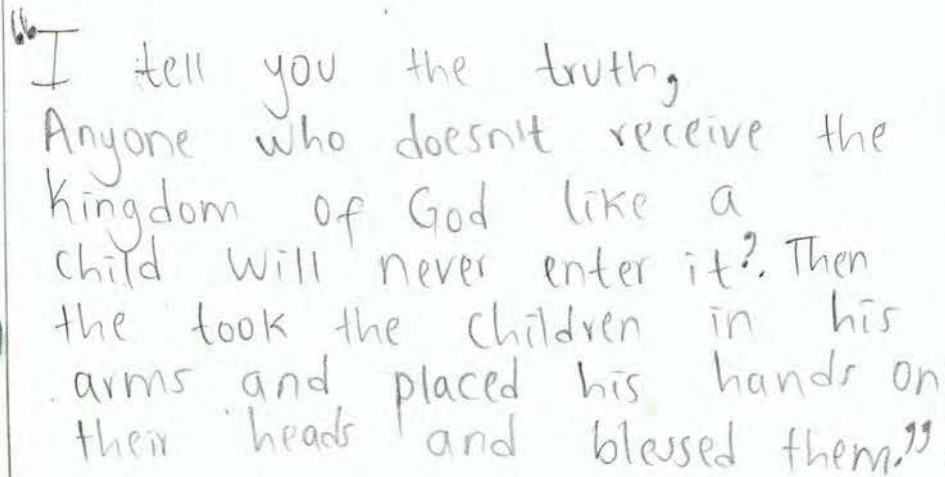 "I tell you the truth,
Anyone who doesn't receive the
kingdom of God like a
child will never enter it?. Then
the took the children in his
arms and placed his hands on
their heads and blessed them."